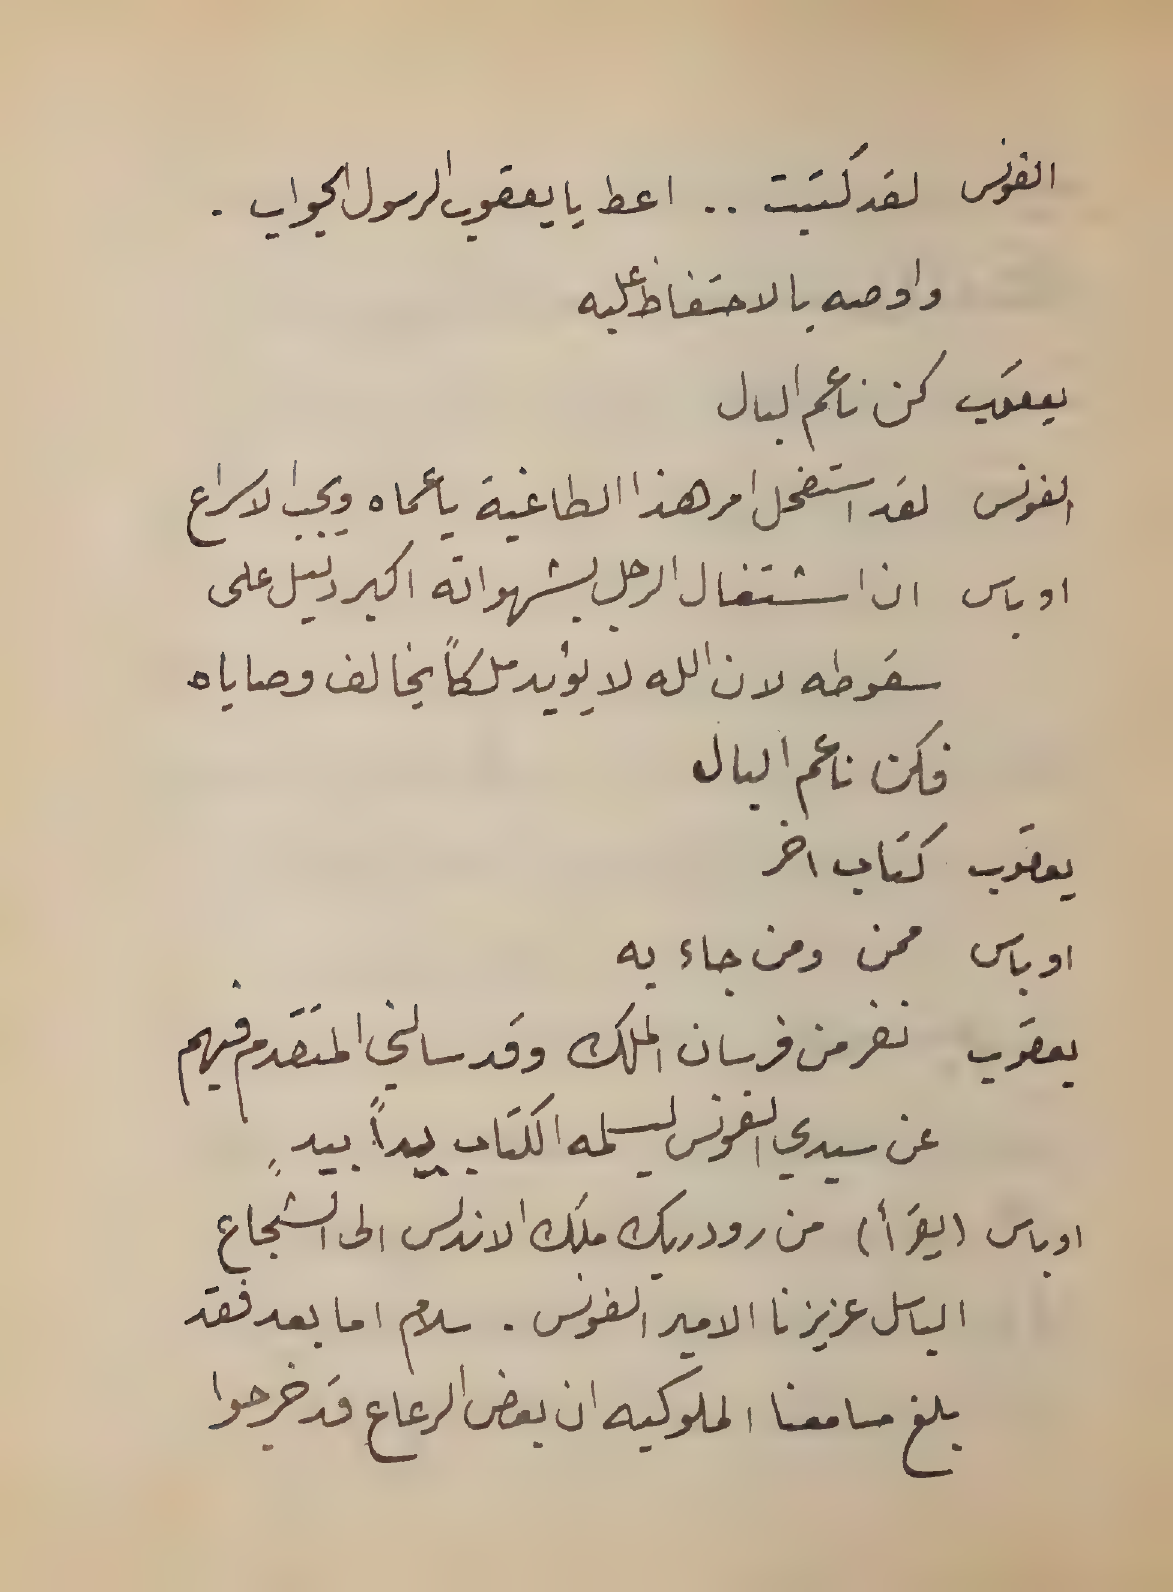 الفونس لقد كتبت .. اعط يا يعقوب الرسول الجواب .
واوصه بالاحتفاظ عليه
يعقوب كن ناعم البال
الفونس لقد استفحل امر هذا الطاغية يا عماه ويجب الاسراع
اوباس ان اشتغال الرجل بشهواته اكبر دليل على
سقوطه لان الله لا يؤيد ملكاً يخالف وصاياه
فكن ناعم البال
يعقوب كتاب اخر
اوباس ممن ومن جاء به
يعقوب نفر من فرسان الملك وقد سالني المتقدم فيهم
عن سيدي الفونس ليسلمه الكتاب يداً بيدٍ
اوباس (يقرأ) من رودريك ملك الاندلس الى الشجاع
الباسل عزيزنا الامير الفونس . سلام اما بعد فقد
بلغ مسامعنا الملوكيه ان بعض الرعاع قد خرجوا